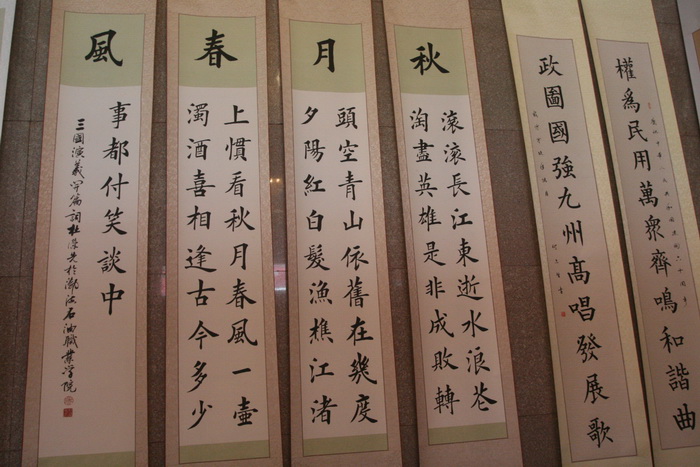 權為民用萬衆齊鳴和諧曲
政圖國強九州高唱發展歌
秋
滾滾長江東逝水浪花
淘盡英雄是非成敗轉
月
頭空青山依舊在幾度
夕陽紅白髮漁樵江渚
春
上慣看秋月春風一壺
濁酒喜相逢古今多少
風
事都付笑談中
三國演義 篇詞 石油職業學院